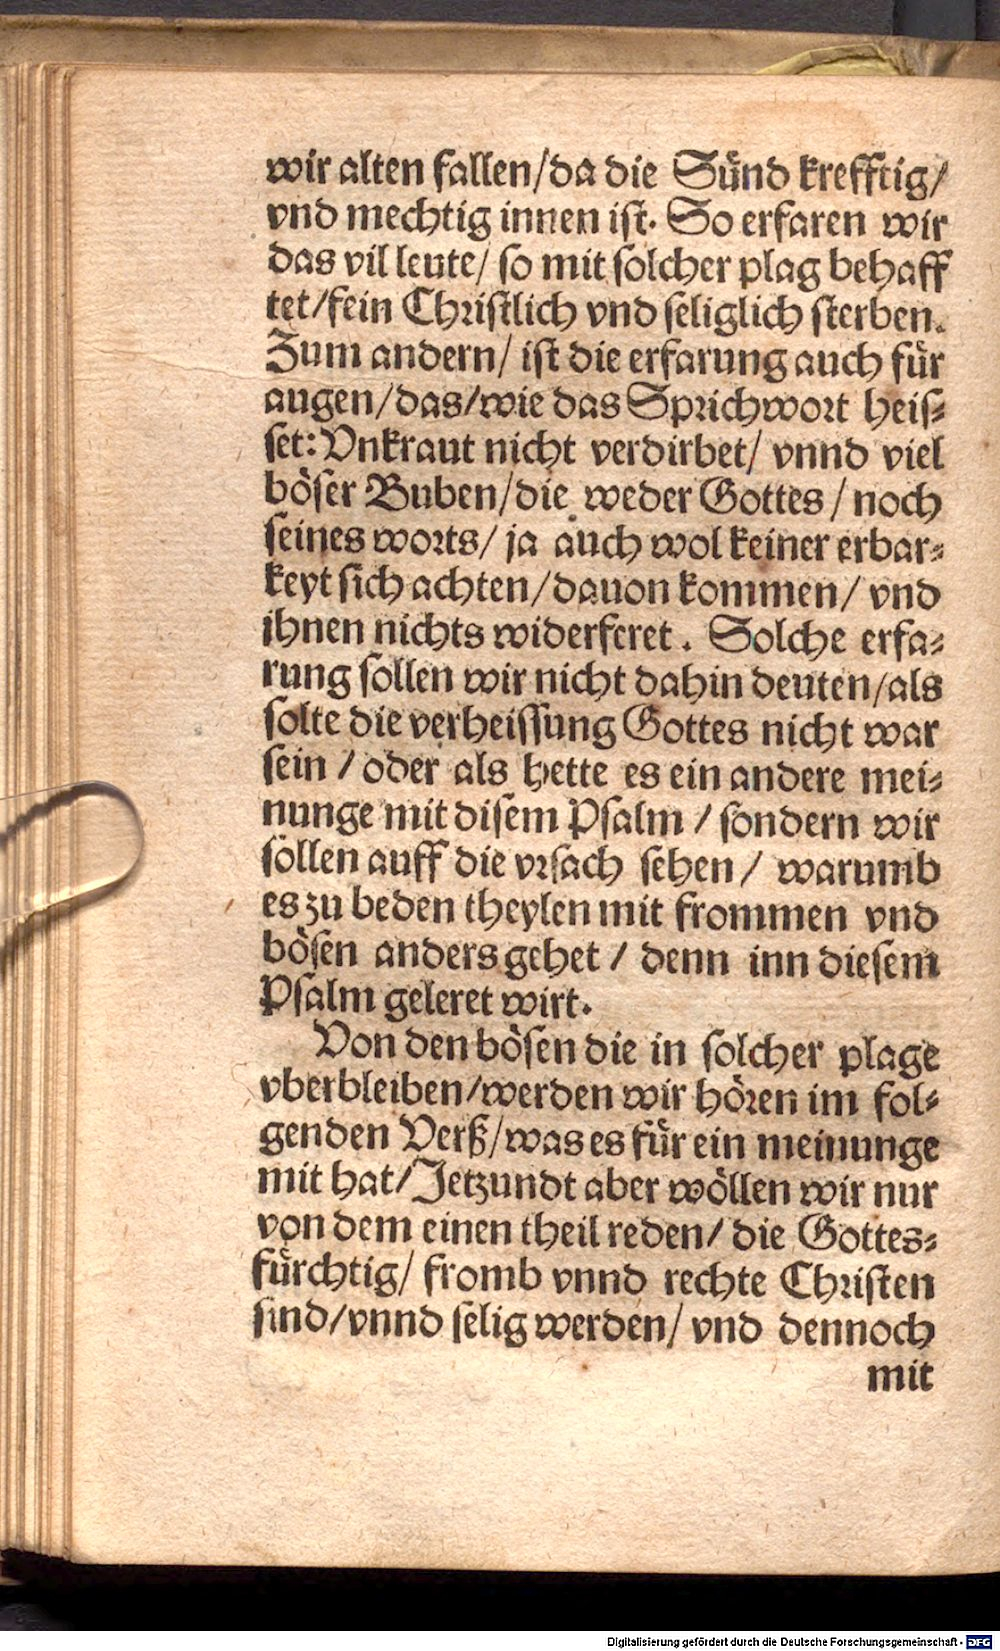 wir alten fallen/da die Sünd krefftig/
vnd mechtig innen ist. So erfaren wir
das vil leute/ so mit solcher plag behaff
tet/fein Christlich vnd seliglich sterben.
Zum andern/ ist die erfarung auch für
augen/das/wie das Sprichwort heis-
set: Vnkraut nicht verdirbet/ vnnd viel
böser Buben/die weder Gottes / noch
seines worts/ ja auch wol keiner erbar-
keyt sich achten/dauon kommen/ vnd
ihnen nichts widerferet. Solche erfa-
rung sollen wir nicht dahin deuten/als
solte die verheissung Gottes nicht war
sein / oder als hette es ein andere mei-
nunge mit disem Psalm / sondern wir
söllen auff die vrsach sehen/ warumb
es zu beden theylen mit frommen vnd
bösen anders gehet / denn inn diesem
Psalm geleret wirt.
Von den bösen die in solcher plage
vberbleiben/werden wir hören im fol-
genden Verß/was es für ein meinunge
mit hat/Jetzundt aber wöllen wir nur
von dem einen theil reden/ die Gottes-
fürchtig/ fromb vnnd rechte Christen
sind/vnnd selig werden/ vnd dennoch
mit
Digitalisierung gefördert durch die Deutsche Forschungsgemeinschaft - DFG